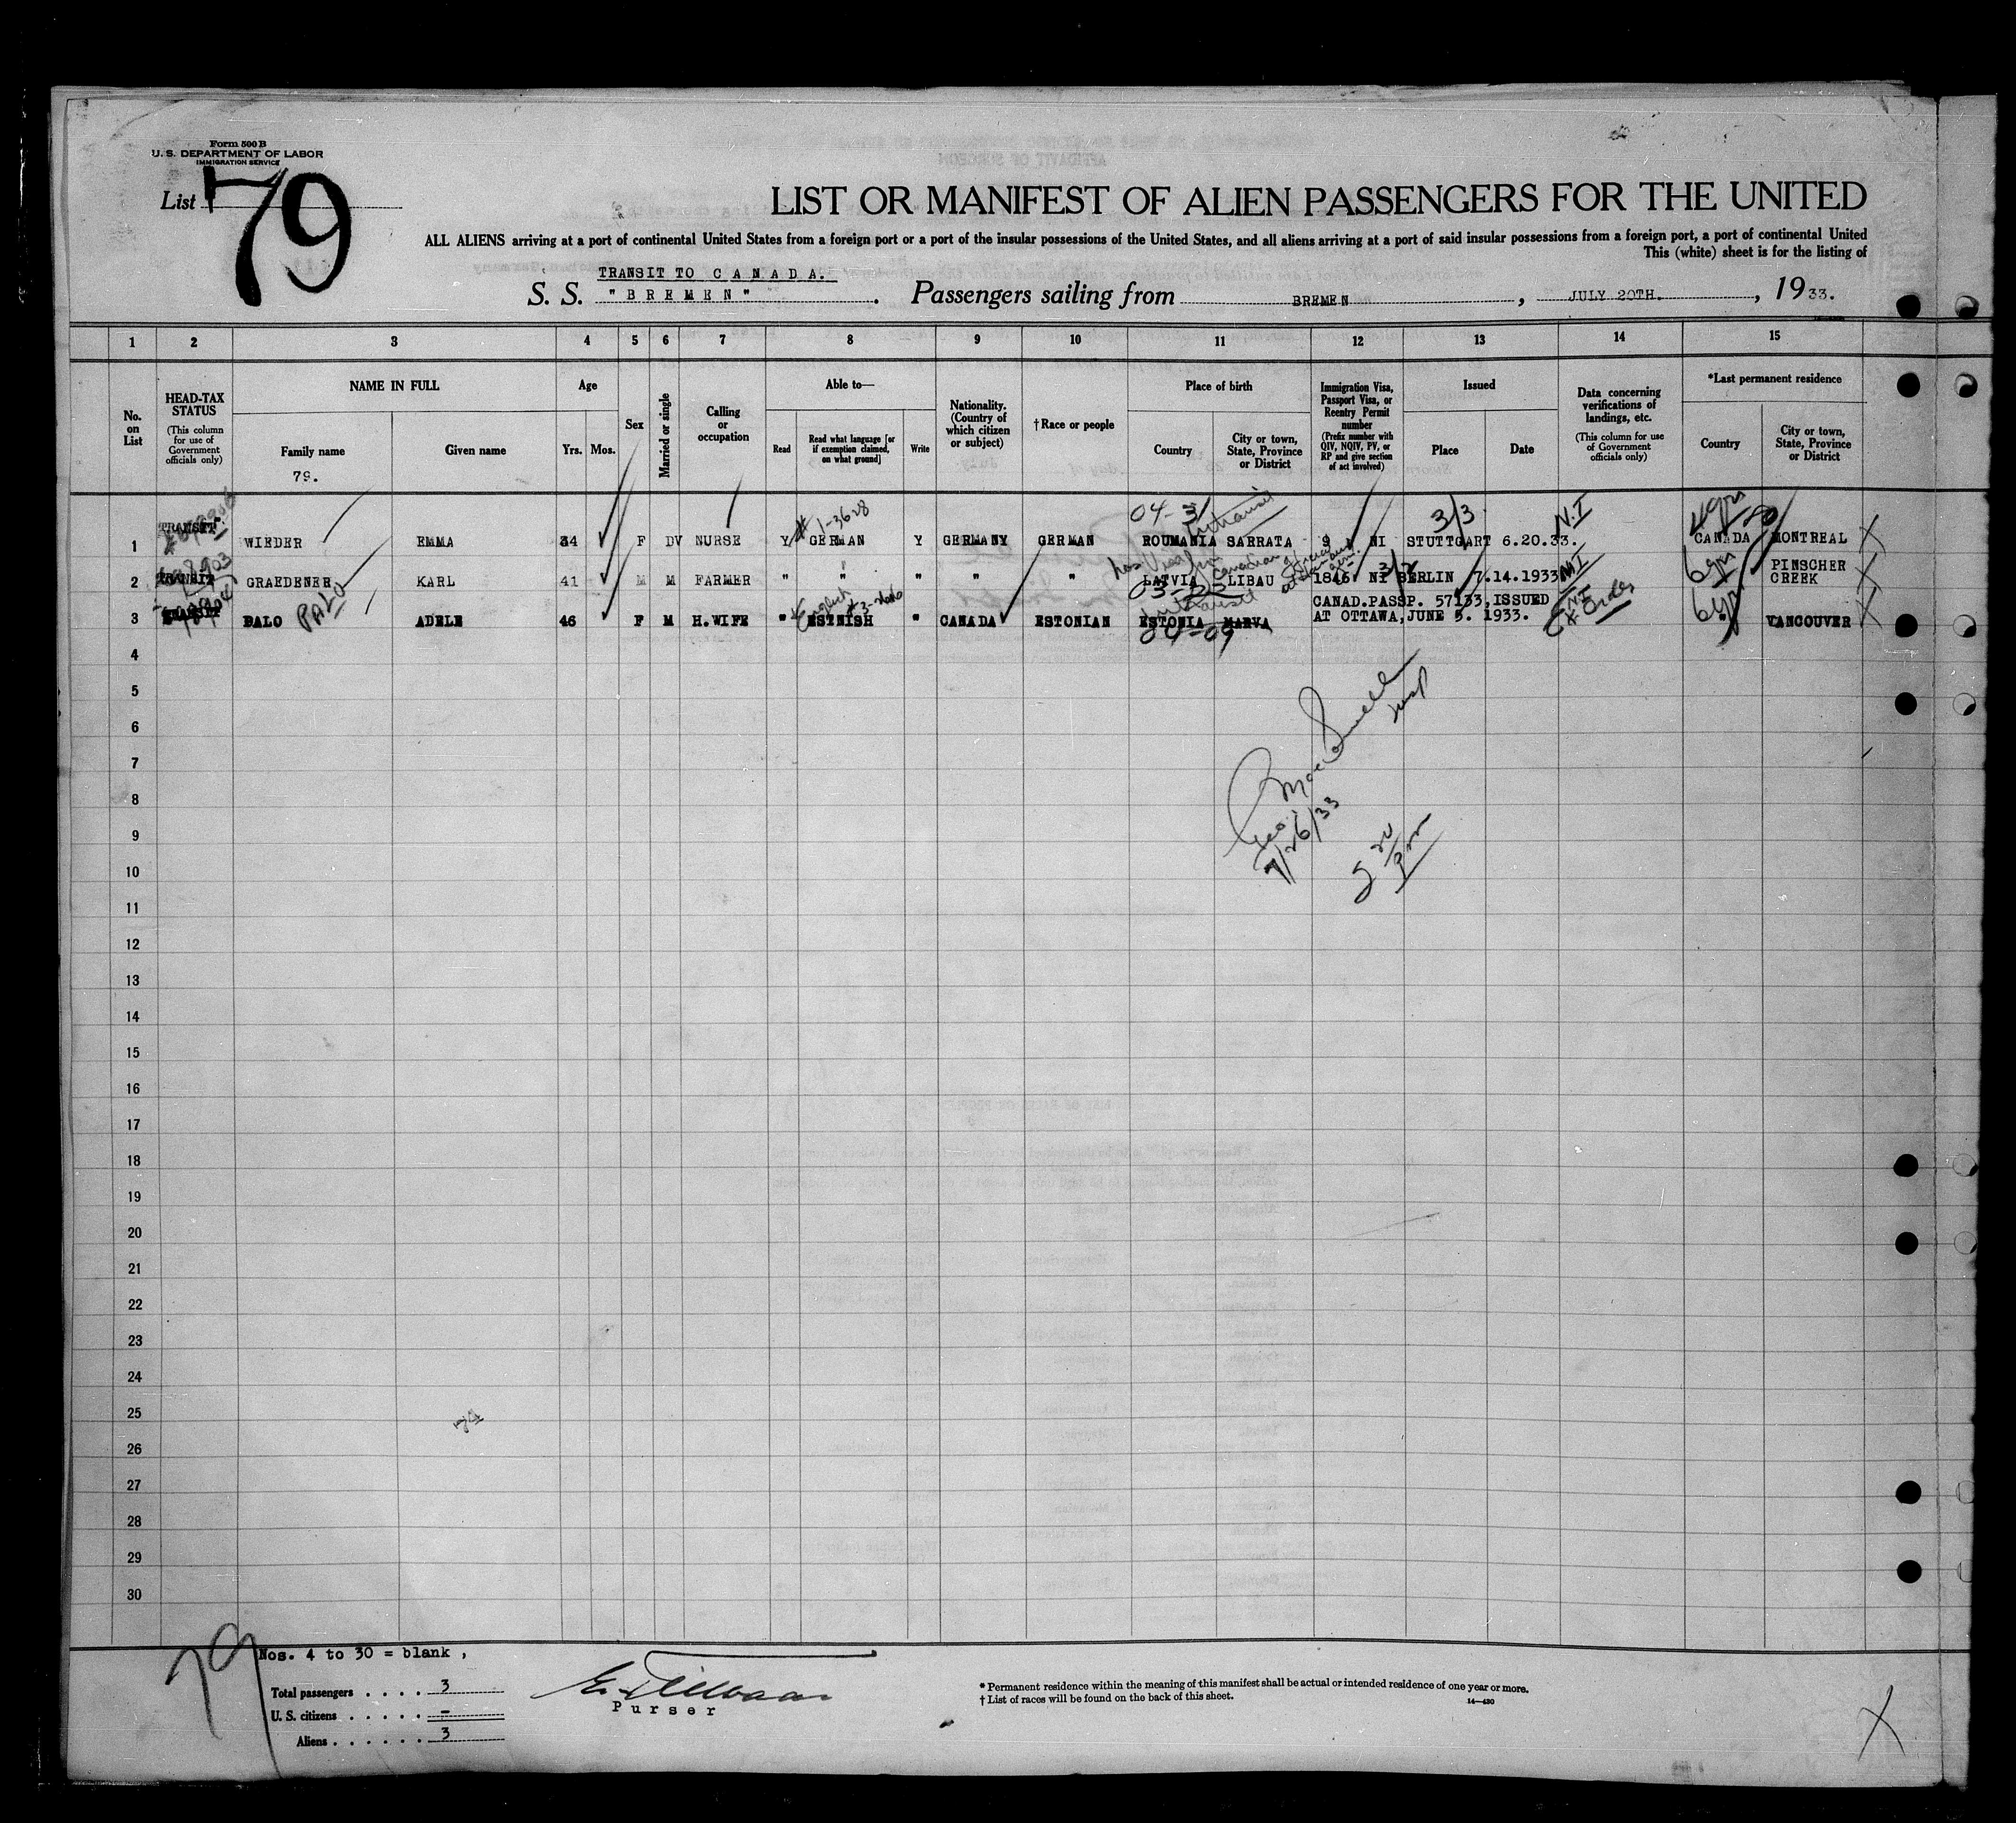 Form 500 B
U. S. DEPARTMENT OF LABOR
IMMIGRATION SERVICE
List 79
LIST OR MANIFEST OF ALIEN PASSENGERS FOR THE UNITED
ALL ALIENS arriving at a port of continental United States from a foreign port or a port of the insular possessions of the United States, and all aliens arriving at a port of said insular possessions from a foreign port, a port of continental United
This (white) sheet is for the listing of
TRANSIT TO C A N A D A.
S. S. "B R E M E N" . Passengers sailing from BREMEN , JULY 20TH. , 1933.
1 2 3 4 5 6 7 8 9 10 11 12 13 14 15
No. on List
HEAD-TAX STATUS
(This column for use of Government officials only)
NAME IN FULL
Family name
79.
Given name
Age
Yrs. Mos.
Sex
Married or single
Calling or occupation
Able to—
Read
Read what language [or if exemption claimed, on what ground]
Write
Nationality. (Country of which citizen or subject)
†Race or people
Place of birth
Country
City or town, State, Province or District
Immigration Visa, Passport Visa, or Reentry Permit number
(Prefix number with QIV, NQIV, PV, or RP and give section of act involved)
Issued
Place
Date
Data concerning verifications of landings, etc.
(This column for use of Government officials only)
*Last permanent residence
Country
City or town, State, Province or District
04-3 In transit 3/3 N.I 4 yrs
1-3628
1 TRANSIT WIEDER EMMA 34 F DV NURSE Y GERMAN Y GERMANY GERMAN ROUMANIA SARRATA 9 NI STUTTGART 6.20.33. CANADA MONTREAL
has Visa Canadian N.I 6 yrs
2 TRANSIT GRAEDENER KARL 41 M M FARMER " " " " " LATVIA LIBAU 1846 NI BERLIN 7.14.1933 PINSCHER CREEK
03- In transit
English
CANAD.PASSP. 57133, ISSUED
3 TRANSIT BALO PALO ADELE 46 F M H.WIFE " ESTNISH " CANADA ESTONIAN ESTONIA NARVA AT OTTAWA, JUNE 5. 1933. VANCOUVER
04-09
4
5
6
7
8
9
10
11
12
13
14
15
16
17
18
19
20
21
22
23
24
25
26
27
28
29
30
Insp
7/26/33
5 20 pm
79
79
Nos. 4 to 30 = blank ,
Total passengers . . . . 3
U. S. citizens . . . . . –
Aliens . . . . . . 3
Purser
* Permanent residence within the meaning of this manifest shall be actual or intended residence of one year or more.
† List of races will be found on the back of this sheet.
14—430